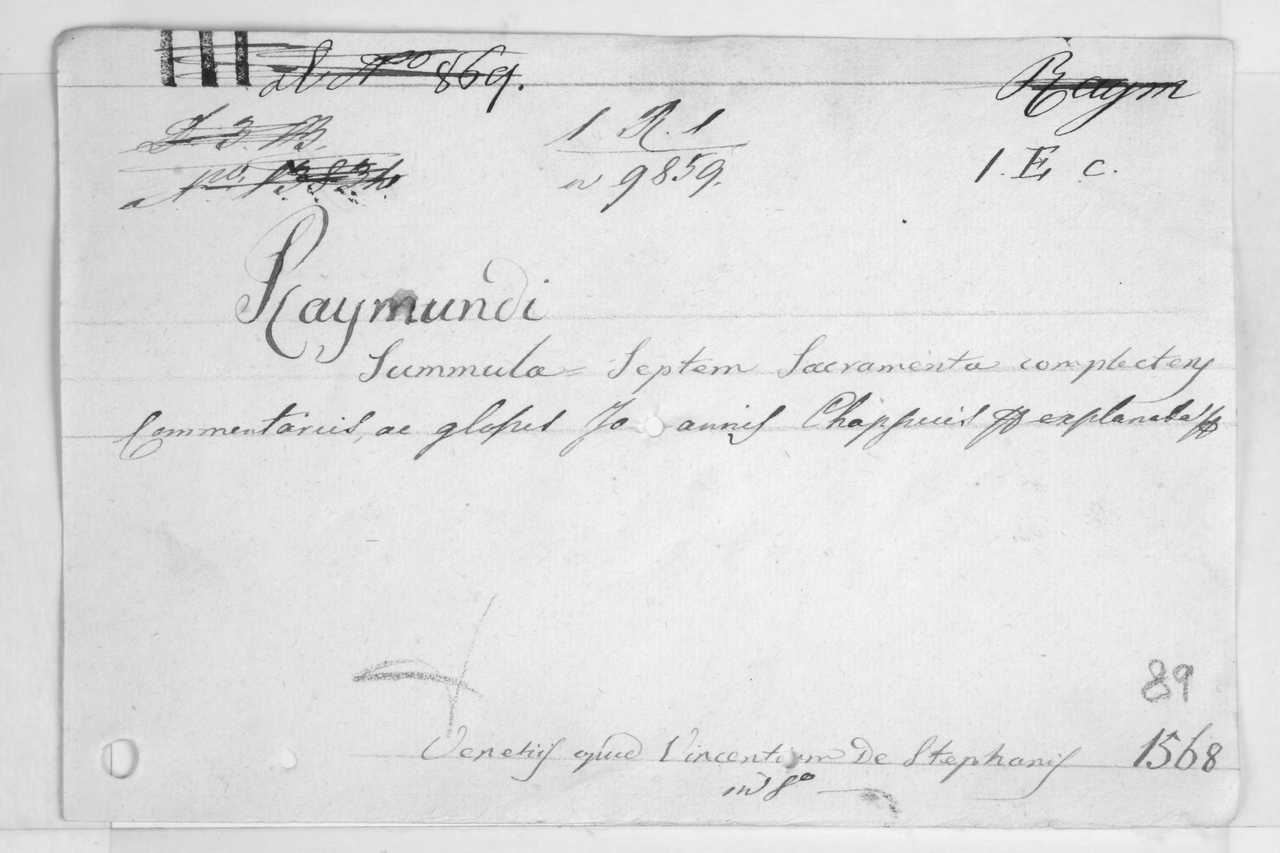 N.o 869. Raym
I. 3. B. 1. R. 1
N.o 13834. n 9859. 1. E. c.
Raymundi
Summula = Septem Sacramenta complectens
Commentariis, ac glossis Joannis Chappuis explanata
89
Venetiis apud Vincentium De Stephanis 1568
in 8o